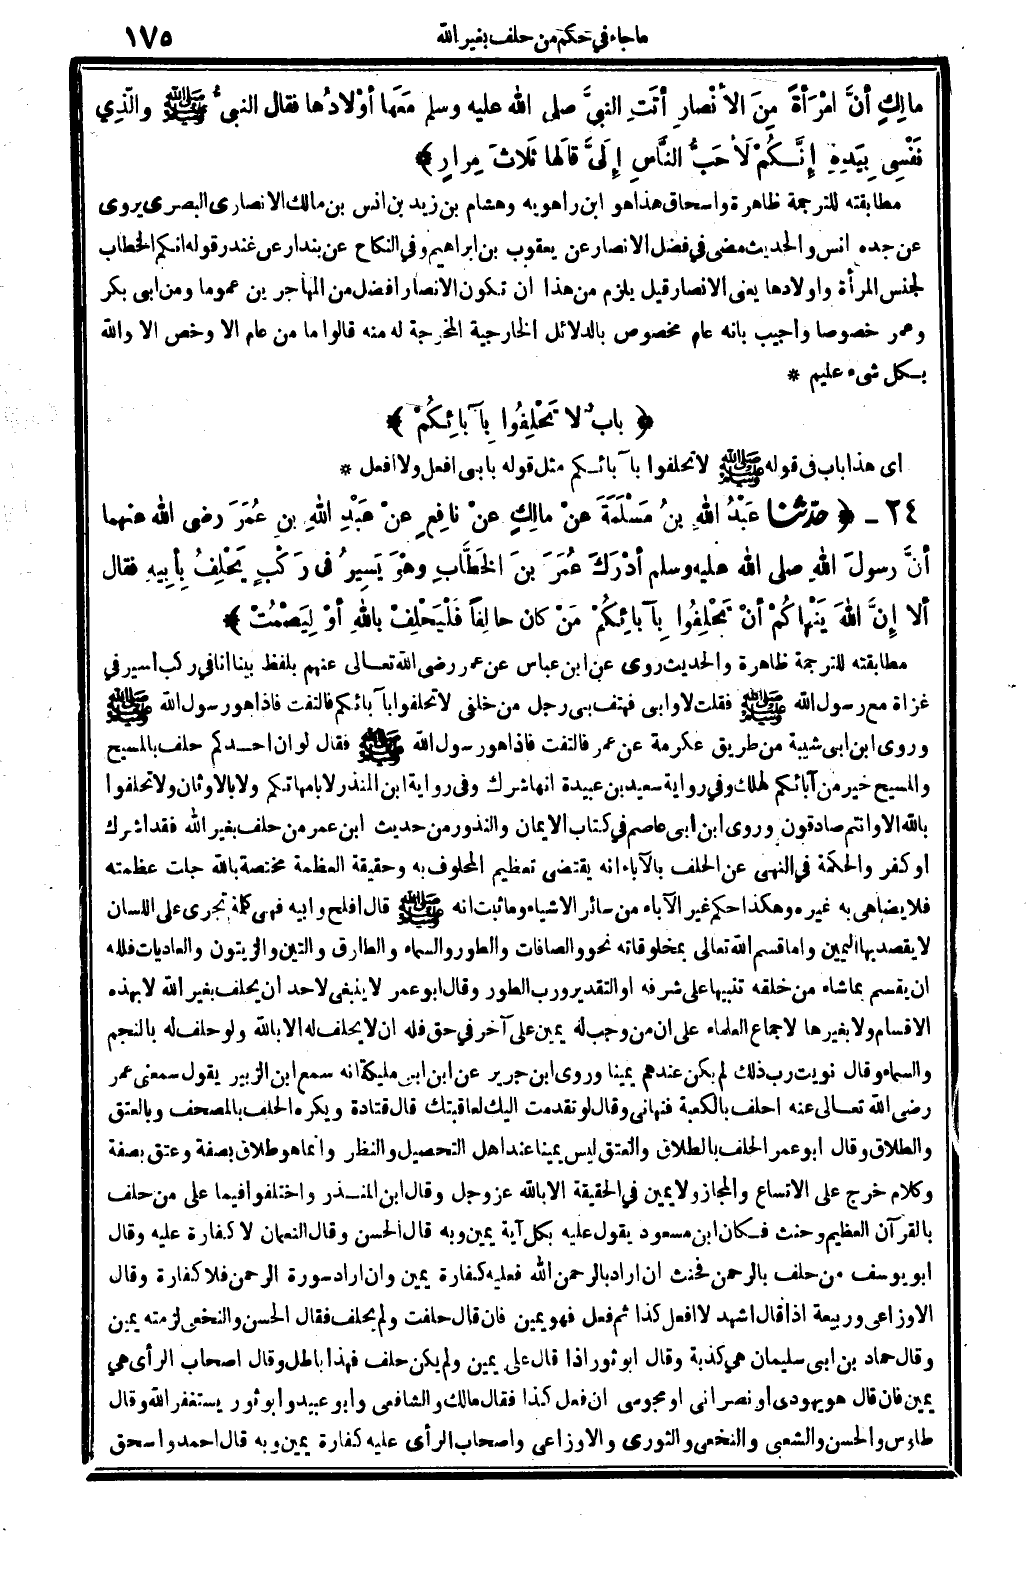 ما جاء في حكم من حلف بغير الله
١٧٥
مالِكٍ أنَّ امْرَأةً مِنَ الأنْصارِ أتَتِ النبيَّ صلى الله عليه وسلم مَعَها أوْلادُها فقال النبيُّ ﷺ والَّذِي
نَفْسِي بِيَدِهِ إِنَّكُمْ لَأحَبُّ النَّاسِ إِلَىَّ قالَها ثَلاثَ مِرارٍ ﴾
مطابقته للترجمة ظاهرة واسحاق هذا هو ابن راهويه وهشام بن زيد بن انس بن مالك الانصارى البصرى يروى
عن جده انس والحديث مضى في فضل الانصار عن يعقوب بن ابراهيم وفي النكاح عن بندار عن غندر قوله انكم الخطاب
لجنس المرأة واولادها يعنى الانصار قيل يلزم من هذا ان تكون الانصار افضل من المهاجرين عموما ومن ابى بكر
وعمر خصوصا وأجيب بانه عام مخصوص بالدلائل الخارجية المخرجة له منه قالوا ما من عام الا وخص الا والله
بكل شىء عليم *
﴿ بابٌ لا تَحْلِفُوا بِآبائِكُمْ ﴾
اى هذا باب فى قوله ﷺ لا تحلفوا بآبائكم مثل قوله بابى افعل ولا افعل *
٢٤ - ﴿ حدّثنا عَبْدُ اللهِ بنُ مَسْلَمَةَ عَنْ مالِكٍ عنْ نافِعٍ عنْ عَبْدِ اللهِ بنِ عُمَرَ رضى الله عنهما
أنَّ رسولَ اللهِ صلى الله عليه وسلم أدْرَكَ عُمَرَ بنَ الخَطَّابِ وهْوَ يَسِيرُ فى رَكْبٍ يَحْلِفُ بأبِيهِ فقال
ألا إنَّ اللهَ يَنْهاكُمْ أنْ تَحْلِفُوا بِآبائِكُمْ مَنْ كان حالِفًا فَلْيَحْلِفْ باللهِ أوْ لِيَصْمُتْ ﴾
مطابقته للترجمة ظاهرة والحديث روى عن ابن عباس عن عمر رضى الله تعالى عنهم بلفظ بينا انا في ركب اسير في
غزاة مع رسول الله ﷺ فقلت لا وابى فهتف بى رجل من خلفى لا تحلفوا بآبائكم فالتفت فاذا هو رسول الله ﷺ
وروى ابن ابى شيبة من طريق عكرمة عن عمر فالتفت فاذا هو رسول الله ﷺ فقال لو ان احدكم حلف بالمسيح
والمسيح خير من آبائكم لهلك وفي رواية سعيد بن عبيدة انها شرك وفى رواية ابن المنذر لا بامهاتكم ولا بالاوثان ولا تحلفوا
بالله الا وانتم صادقون وروى ابن ابى عاصم في كتاب الايمان والنذور من حديث ابن عمر من حلف بغير الله فقد اشرك
او كفر والحكمة في النهى عن الحلف بالآباء انه يقتضى تعظيم المحلوف به وحقيقة العظمة مختصة بالله جلت عظمته
فلا يضاهى به غيره وهكذا حكم غير الآباء من سائر الاشياء وما ثبت انه ﷺ قال افلح وابيه فهى كلمة تجرى على اللسان
لا يقصد بها اليمين واما قسم الله تعالى بمخلوقاته نحو والصافات والطور والسماء والطارق والتين والزيتون والعاديات فلله
ان يقسم بما شاء من خلقه تنبيها على شرفه او التقدير ورب الطور وقال ابو عمر لا ينبغى لاحد ان يحلف بغير الله لا بهذه
الاقسام ولا بغيرها لاجماع العلماء على ان من وجب له يمين على آخر في حق فله ان لا يحلف له الا بالله ولو حلف له بالنجم
والسماء وقال نويت رب ذلك لم يكن عندهم يمينا وروى ابن جرير عن ابن ابى مليكة انه سمع ابن الزبير يقول سمعنى عمر
رضى الله تعالى عنه احلف بالكعبة فنهانى وقال لو تقدمت اليك لعاقبتك قال قتادة ويكره الحلف بالمصحف وبالعتق
والطلاق وقال ابو عمر الحلف بالطلاق والعتق ليس يمينا عند اهل التحصيل والنظر وانما هو طلاق بصفة وعتق بصفة
وكلام خرج على الاتساع والمجاز ولا يمين في الحقيقة الا بالله عز وجل وقال ابن المنذر واختلفوا فيما على من حلف
بالقرآن العظيم وحنث فكان ابن مسعود يقول عليه بكل آية يمين وبه قال الحسن وقال النعمان لا كفارة عليه وقال
ابو يوسف من حلف بالرحمن فحنث ان اراد بالرحمن الله فعليه كفارة يمين وان اراد سورة الرحمن فلا كفارة وقال
الاوزاعى وربيعة اذا قال اشهد لا افعل كذا ثم فعل فهو يمين فان قال حلفت ولم يحلف فقال الحسن والنخعى لزمته يمين
وقال حماد بن ابى سليمان هي كذبة وقال ابو ثور اذا قال على يمين ولم يكن حلف فهذا باطل وقال اصحاب الرأى هي
يمين فان قال هو يهودى او نصرانى او مجوسى ان فعل كذا فقال مالك والشافعى وابو عبيد وابو ثور يستغفر الله وقال
طاوس والحسن والشعبى والنخعى والثورى والاوزاعى واصحاب الرأى عليه كفارة يمين وبه قال احمد واسحق